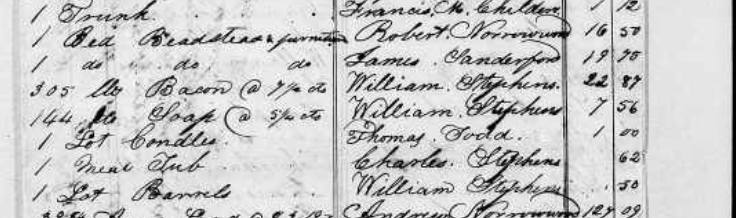 1 Trunk Francis. M. Childers 1 12
1 Bed Beadstead & furniture Robert. Norrowood 16 50
1 do do do James. Sanderford 19 75
305 lbs Bacon @ 7½ cts William. Stephens. 22 87
144 lbs Soap @ 5¼ cts William. Stephens 7 56
1 Lot Candles. Thomas. Todd. 1 00
1 Meat Tub Charles. Stephens 62
1 Lot Barrels William Stephens 50
Lard @ Andrew Norrowood 127 09